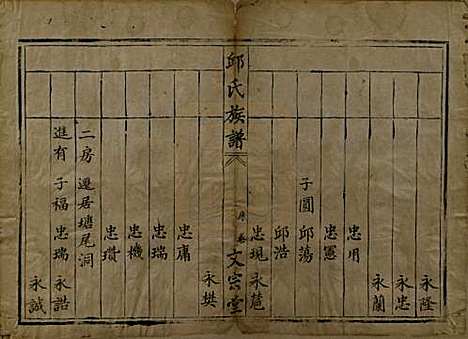 永隆
永忠
永蘭
忠用
忠憲
子圓 邱蕩
邱浩
忠現 永範
邱氏族譜
序 卷
文宗堂
永樊
忠庸
忠瑞
忠機
忠瓚
二房 遷居塘尾洞
進有 子福 忠瑞 永誥
永誠